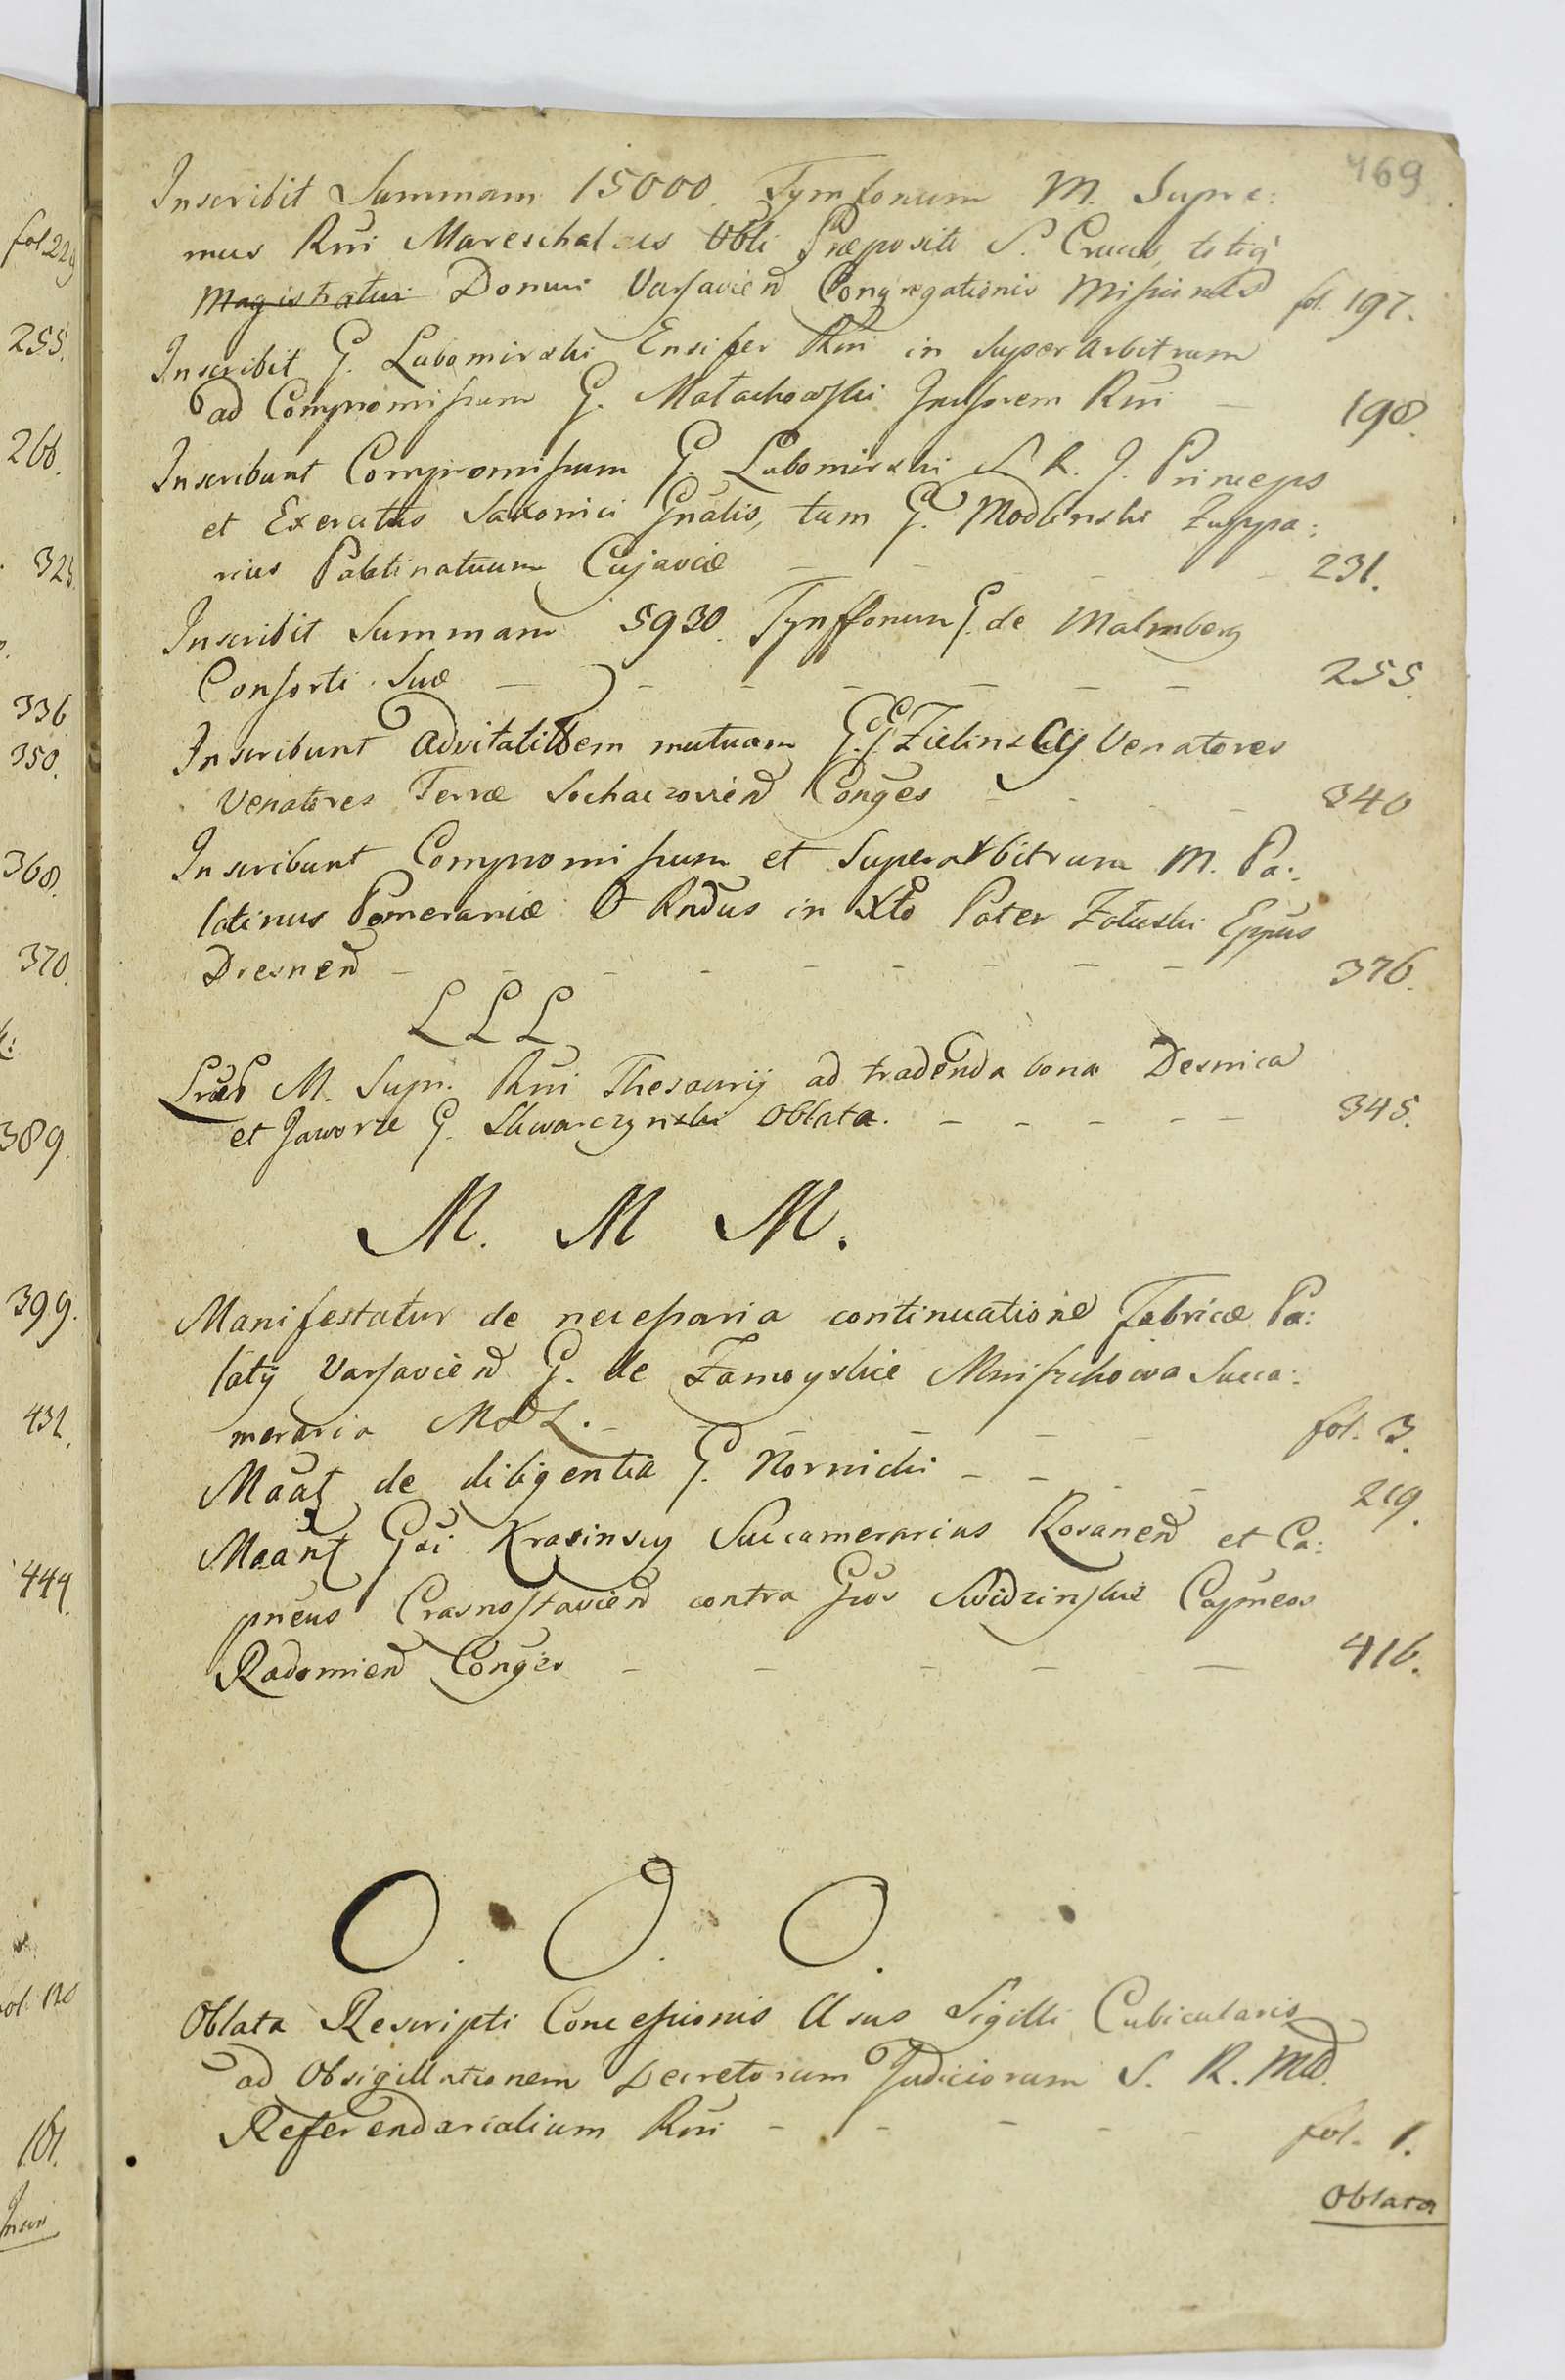 469
Inscribit Summam 15000. Tymfonum M. Supre:
mus Rni Mareschalcus Obli Præposito S. Crucis, totiq
Magistratui Domui Varsavien Congregationis Missionis fol. 197.
Inscribit G. Lubomirski Ensifer Rni in Superarbitrum
ad Compromissum G. Małachowski Incisorem Rni — 198.
Inscribunt Compromissum G. Lubomirski S. R. J. Princeps
et Exercitus Saxonici Gnalis, tum G. Modlinski Zuppa:
rius Palatinatuum Cujaviæ — — — — 231.
Inscribit Summam 5930. Tynffonum G. de Malmberg
Consorti Suæ — — — — — — — 255.
Inscribunt advitalitatem mutuam G.G. Zielinscy Venatores
Venatores Terræ Sochaczovien Conges — — — 340
Inscribunt Compromissum et Superarbitrum M. Pa:
latinus Pomeraniæ & Rndus in Xto Pater Załuski Eppus
Dresnen — — — — — — — — 376.
L L L
Lræ M. Supr. Rni Thesaurij ad tradenda bona Desnica
et Jaworze G. Skwarczynski Oblata. — — — — — 345.
M. M M.
Manifestatur de necessaria continuatione Fabricæ Pa:
latij Varsavien G. de Zamoyskie Mniszchowa Succa:
meraria M D L. — — — — — fol. 3.
Maat de diligentia G. Nornicki — — — — 219.
Maant Gsi Krasinscy Succamerarius Rosanen et Ca:
pneus Crasnostavien contra Gsos Swidzinskie Capneos
Radomien Conges — — — — — 416.
O. O. O.
Oblata Rescripti Concessionis Usus Sigilli Cubicularis
ad Obsigillationem Decretorum Judiciorum S. R. Mtis
Referendarialium Rni — — — — — fol. 1.
Oblata
fol 229
255.
266.
325.
336
350.
368.
370.
389.
399.
431.
444.
161.